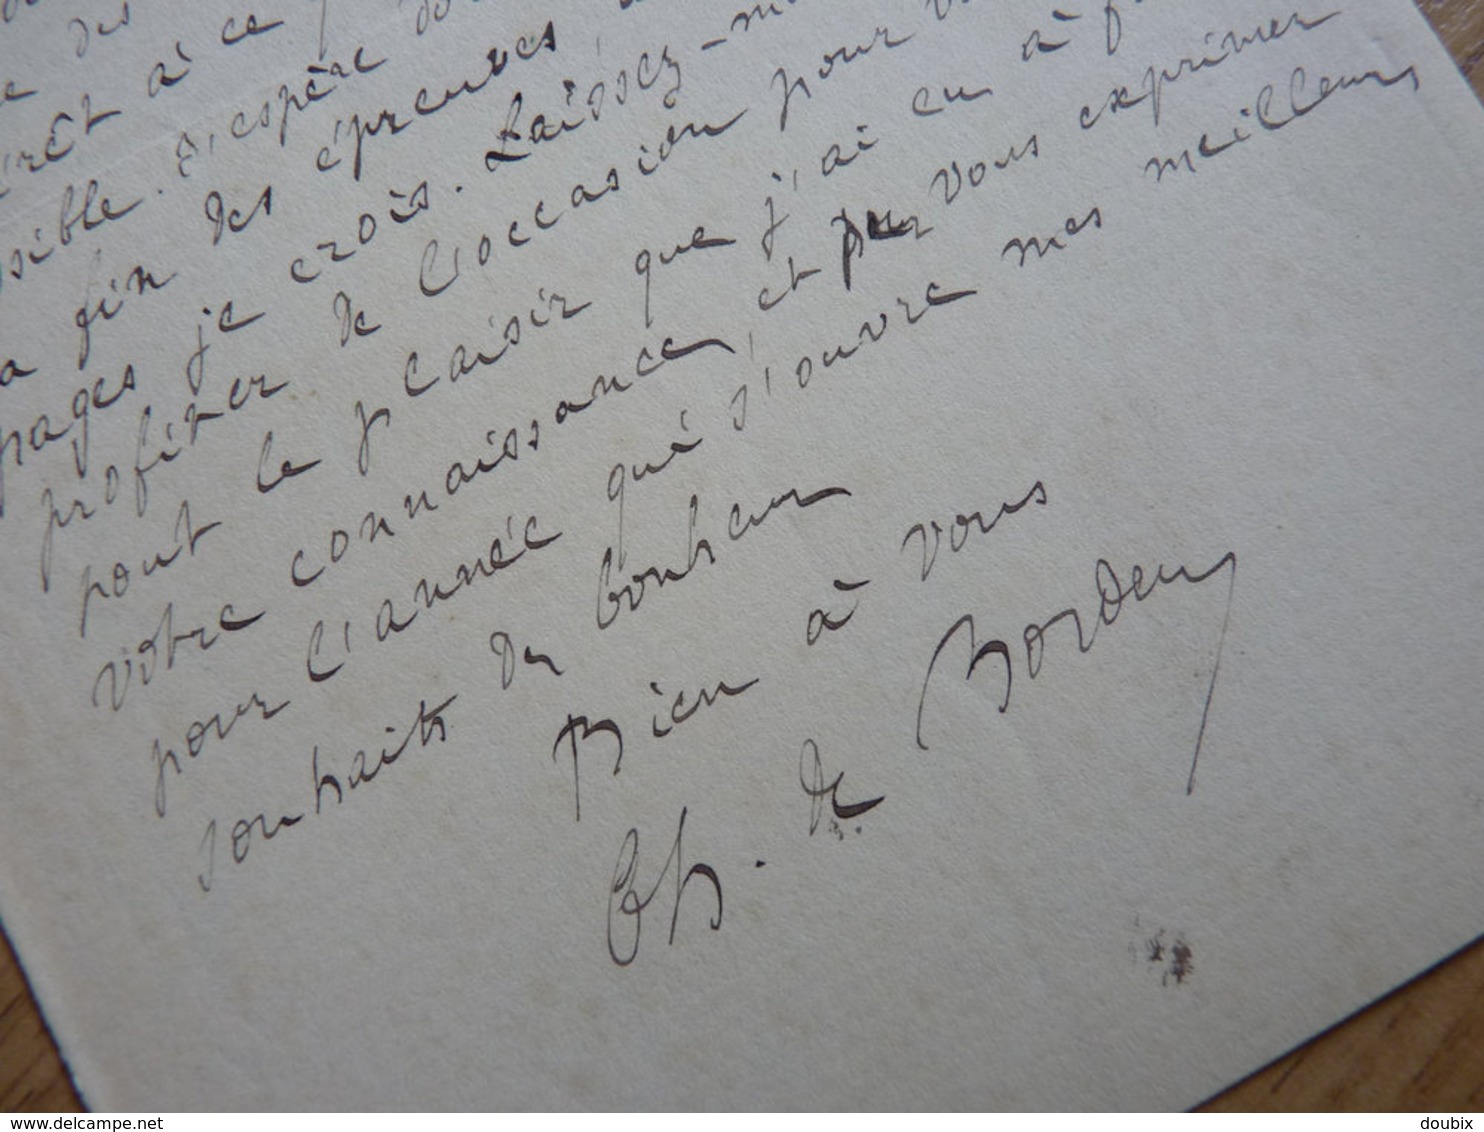 des
à ce
sible. J'espère
la fin des épreuves
pages je crois. Laissez-m
profiter de l'occasion pour v
pour le plaisir que j'ai eu à f
votre connaissance, et pour vous exprimer
pour l'année qui s'ouvre mes meilleurs
souhaits de bonheur
Bien à vous
Ch. de Bordeu
www.delcampe.net
doubix